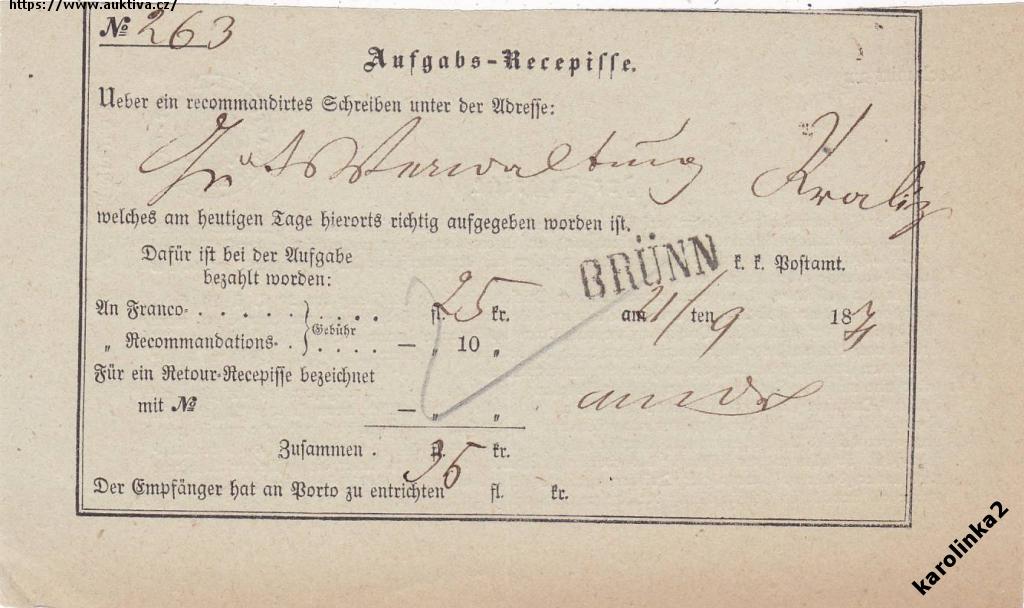 https://www.auktiva.cz/
№ 263
Aufgabs-Recepisse.
Ueber ein recommandirtes Schreiben unter der Adresse:
Gutsverwaltung Kraliz
welches am heutigen Tage hierorts richtig aufgegeben worden ist.
Dafür ist bei der Aufgabe
bezahlt worden:
BRÜNN k. k. Postamt.
An Franco- . . . . . . . . . fl. 25 kr.
am 21/ ten 9 187
„ Recommandations- . . . . . — „ 10 „
Gebühr
Für ein Retour-Recepisse bezeichnet
mit № — „ „
Zusammen . fl. 35 kr.
Der Empfänger hat an Porto zu entrichten fl. kr.
karolinka2